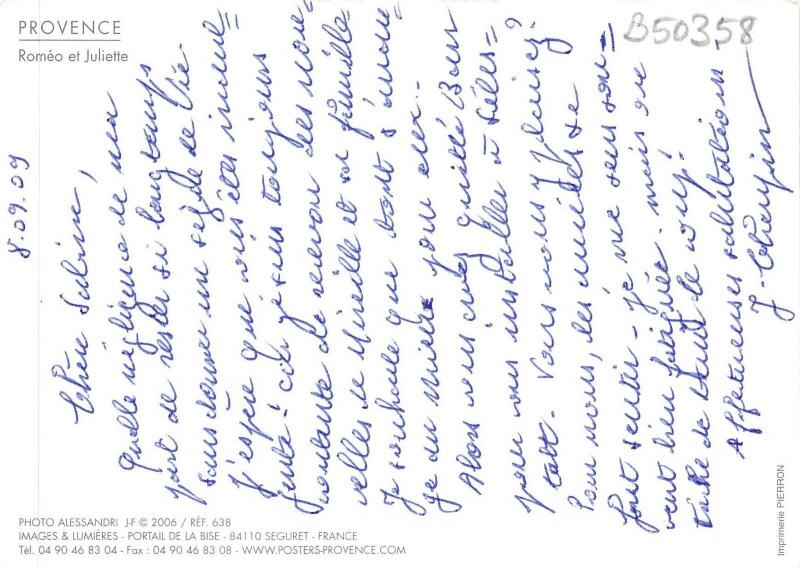 PROVENCE
Roméo et Juliette
B50358
8.09.09
Chère Sabine,
Quelle négligence de ma
part de rester si longtemps
sans donner un signe de vie.
J'espère que vous êtes
car je suis toujours
contente de recevoir des nou=
velles de Mireille et sa famille
Je souhaite que tout s'arran=
ge au mieux pour eux.
Alors vous avez quitté Bour
pour vous installer à Séles=
tatt. Vous vous y plaisez?
Pour nous, les années se
font sentir - je me sens sou=
vent bien fatiguée. mais on
tâche de tenir le coup!
Affectueuses salutations.
J.
PHOTO ALESSANDRI J-F © 2006 / RÉF. 638
IMAGES & LUMIÈRES - PORTAIL DE LA BISE - 84110 SEGURET - FRANCE
Tél. 04 90 46 83 04 - Fax : 04 90 46 83 08 - WWW.POSTERS-PROVENCE.COM
Imprimerie PIERRON